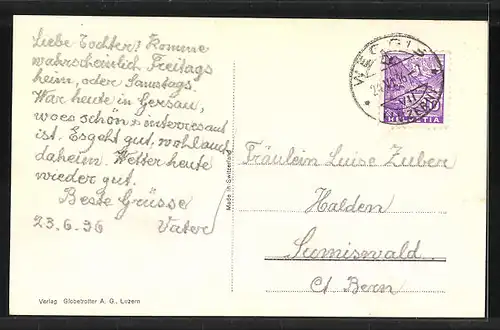 Liebe Tochter! Komme
wahrscheinlich Freitags
heim, oder Samstags.
War heute in Gersau,
wo es schön & interresant
ist. Es geht gut, wohl auch
daheim. Wetter heute
wieder gut.
Beste Grüsse
23.6.36 Vater
Verlag Globetrotter A. G., Luzern
Made in Switzerland
WEGGIS
(LUZERN)
HELVETIA
Fräulein Luise Zuber
Halden
Sumiswald
Ct Bern